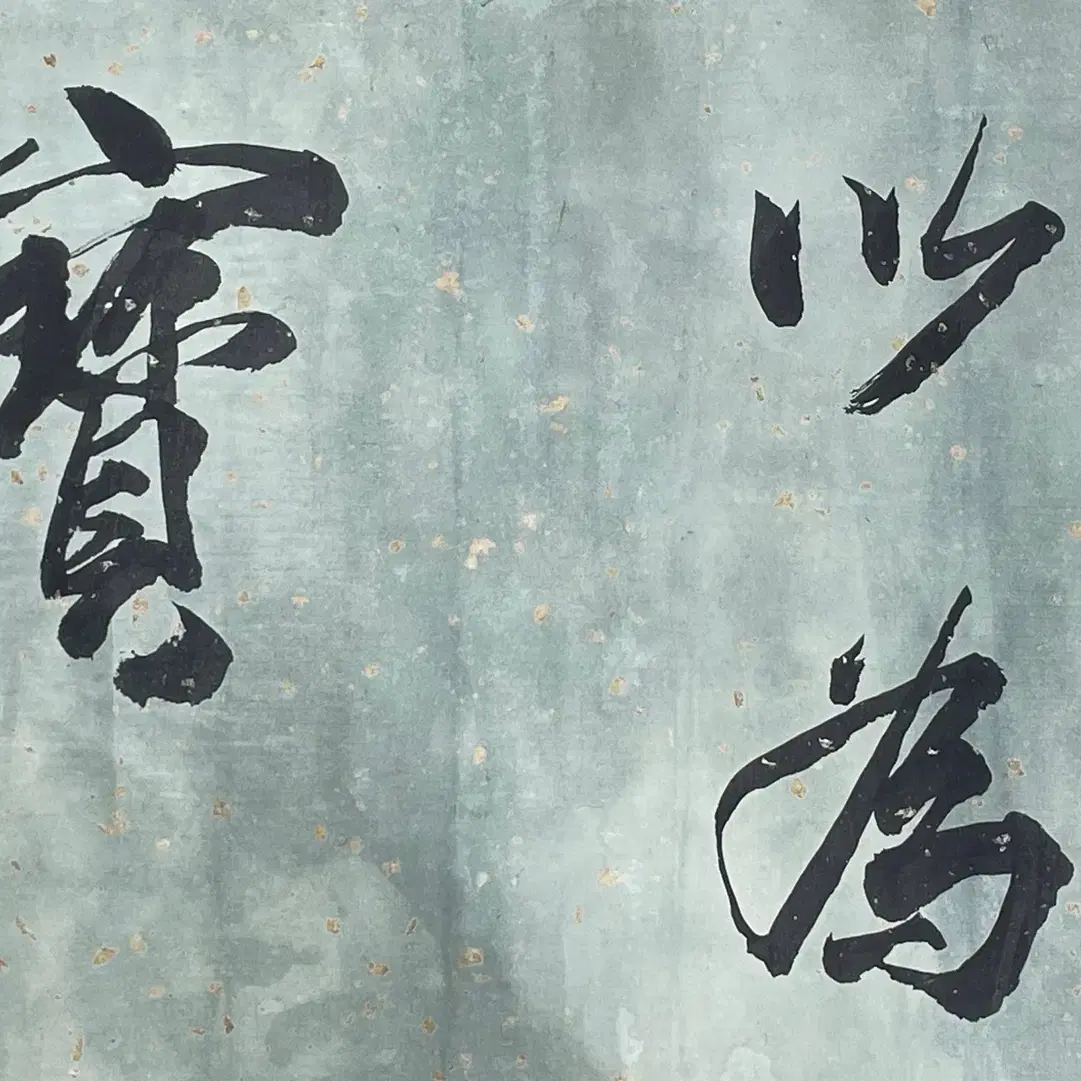 以為
寶